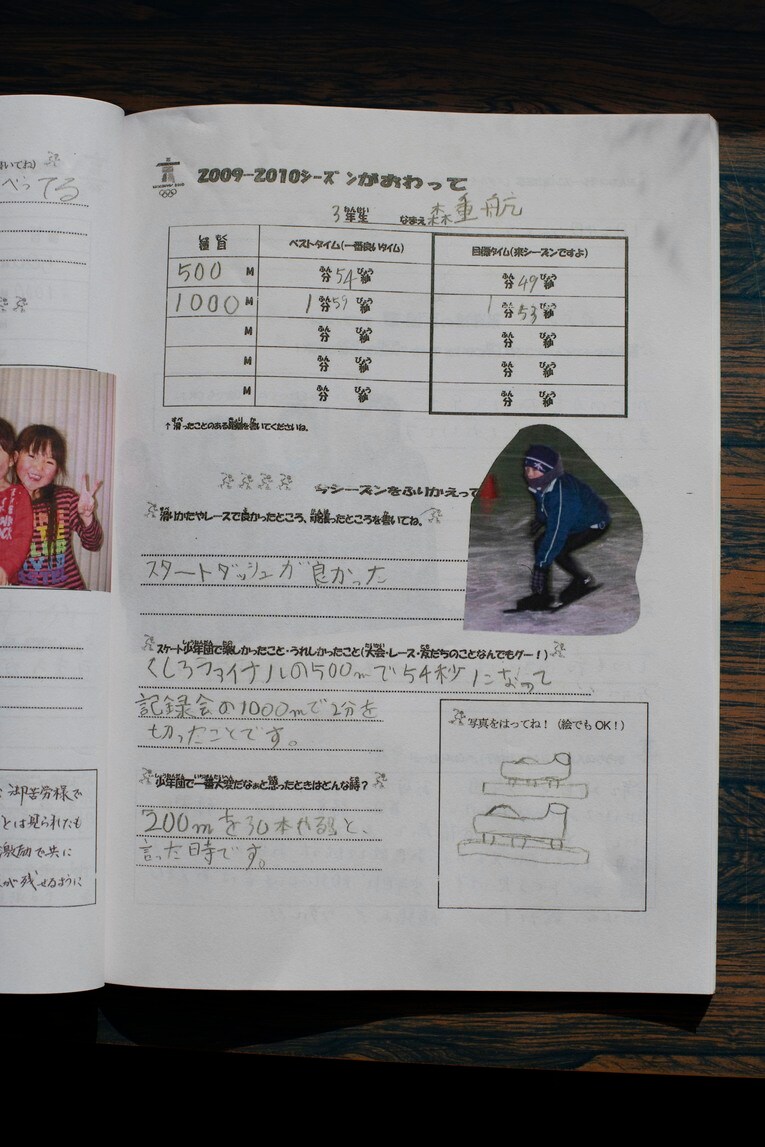 いてね)
べってる
御苦労様で
とは見られたも
激励で共に
が残せるように
2009-2010シーズンがおわって
3年生 なまえ 森重航
種目 ベストタイム(一番良いタイム) 目標タイム(来シーズンですよ)
500 M 分54秒 分49秒
1000 M 1分59秒 1分53秒
M 分 秒 分 秒
M 分 秒 分 秒
M 分 秒 分 秒
↑滑ったことのある距離を書いてくださいね。
今シーズンをふりかえって
滑りかたやレースで良かったところ、頑張ったところを書いてね。
スタートダッシュが良かった
スケート少年団で楽しかったこと・うれしかったこと(大会・レース・友だちのことなんでもグー!)
くしろファイナルの500mで54秒になって
記録会の1000mで2分を
切ったことです。
写真をはってね!(絵でもOK!)
少年団で一番大変だなぁと思ったときはどんな時?
200mを30本やると、
言った時です。